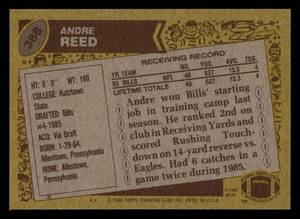 388
ANDRE
REED
HT: 6' 0" WT: 190
COLLEGE: Kutztown
State
DRAFTED: Bills
#4-1985
ACQ: Via Draft
BORN: 1-29-64,
Allentown, Pennsylvania
HOME: Allentown,
Pennsylvania
RECEIVING RECORD
YR. TEAM NO. YDS. AVG. TDS.
85 BILLS 48 637 13.3 4
LIFETIME TOTALS 48 637 13.3 4
Andre won Bills' starting
job in training camp last
season. He ranked 2nd in
club in Receiving Yards and
scored Rushing Touch-
down on 14-yard reverse vs.
Eagles. Had 6 catches in a
game twice during 1985.
© 1986 TOPPS CHEWING GUM, INC. PRTD. IN U.S.A.